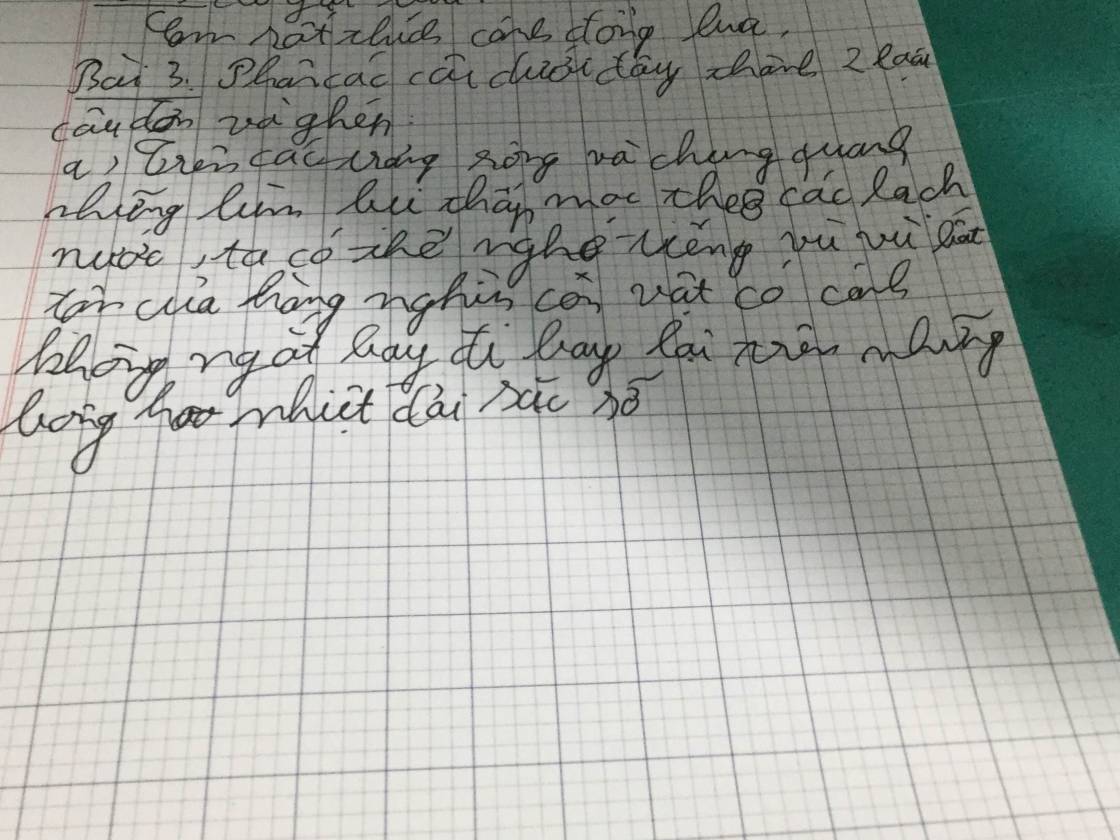 Em rất thích cánh đồng lúa.
Bài 3. Phân các câu dưới đây thành 2 loại
câu đơn và ghép.
a, Trên các trảng rộng và chung quang
những lùm bụi thấp mọc theo các lạch
nước, ta có thể nghe tiếng vù vù bất
tận của hàng nghìn côn vật có cánh
không ngớt bay đi bay lại trên những
bông hoa nhiệt đới sặc sỡ